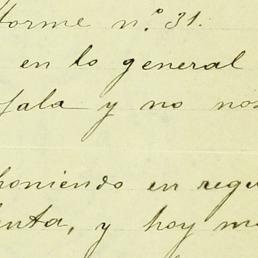 forme n.º 31.
en lo general
fala y no nos
poniendo en regu
enta, y hoy m